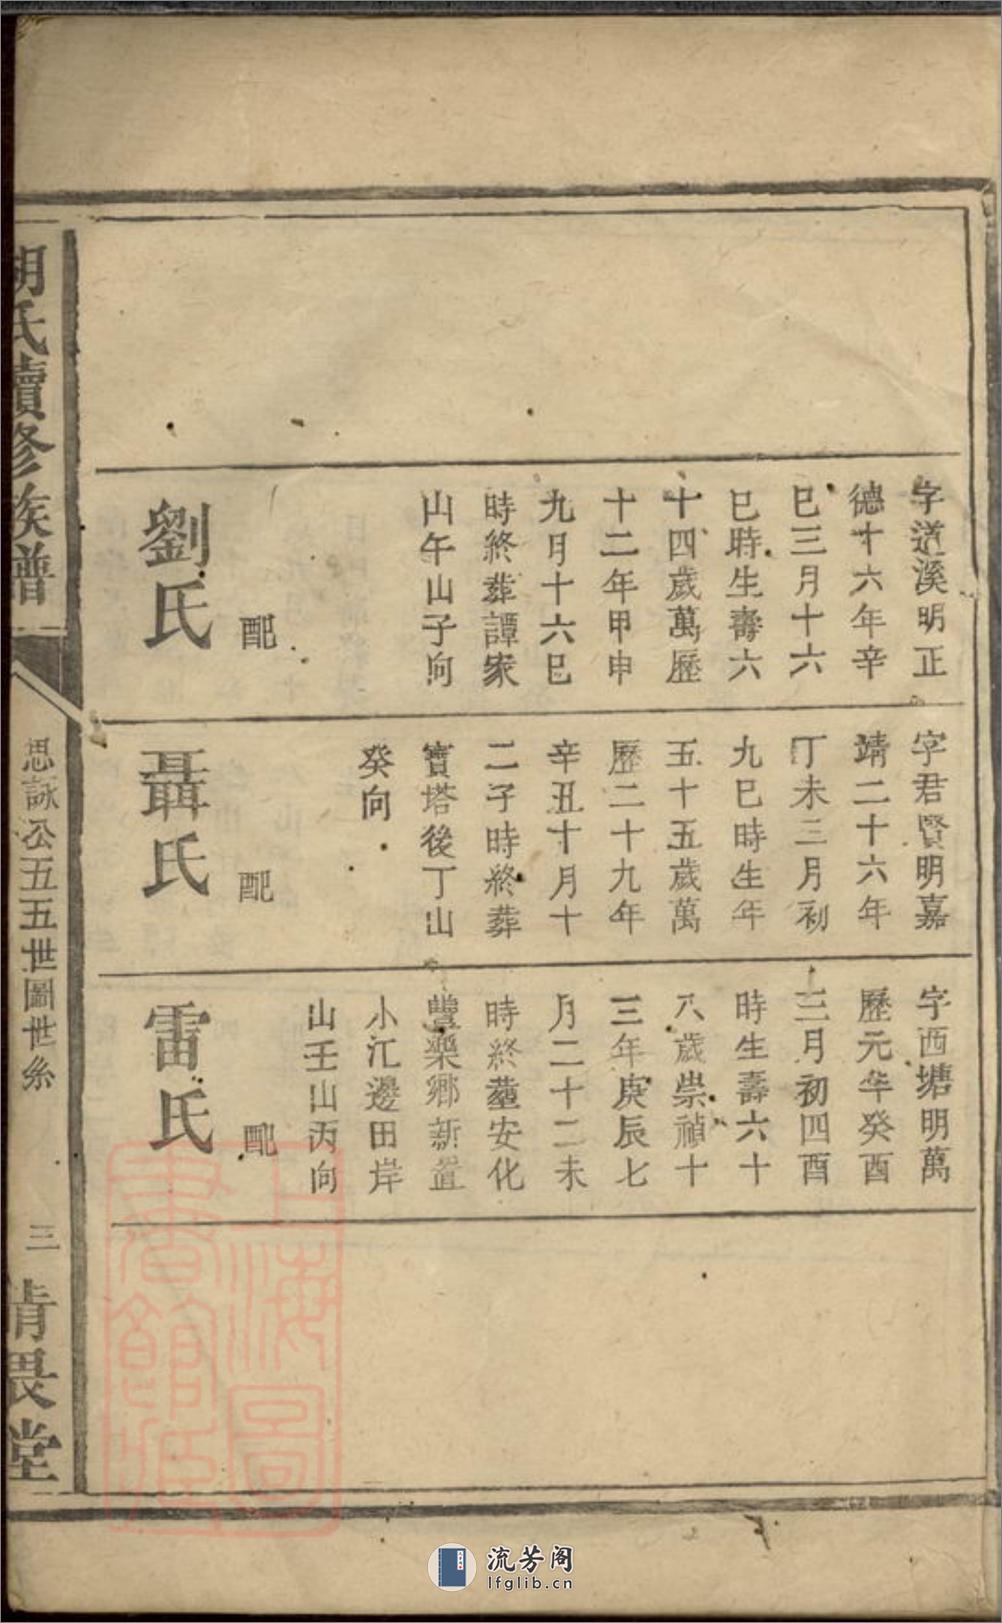 字道溪明正
德十六年辛
巳三月十六
巳時生壽六
十四歲萬歷
十二年甲申
九月十六巳
時終葬譚家
山午山子向
配
劉氏
字君賢明嘉
靖二十六年
丁未三月初
九巳時生年
五十五歲萬
歷二十九年
辛丑十月十
二子時終葬
寶塔後丁山
癸向
配
聶氏
字西塘明萬
歷元年癸酉
三月初四酉
時生壽六十
八歲崇禎十
三年庚辰七
月二十二未
時終塟安化
豐樂鄉新置
小江邊田岸
山壬山丙向
配
雷氏
胡氏續修族譜
思詠公五五世圖世系
三
清畏堂
上海圖
書館藏
流芳阁
lfglib.cn